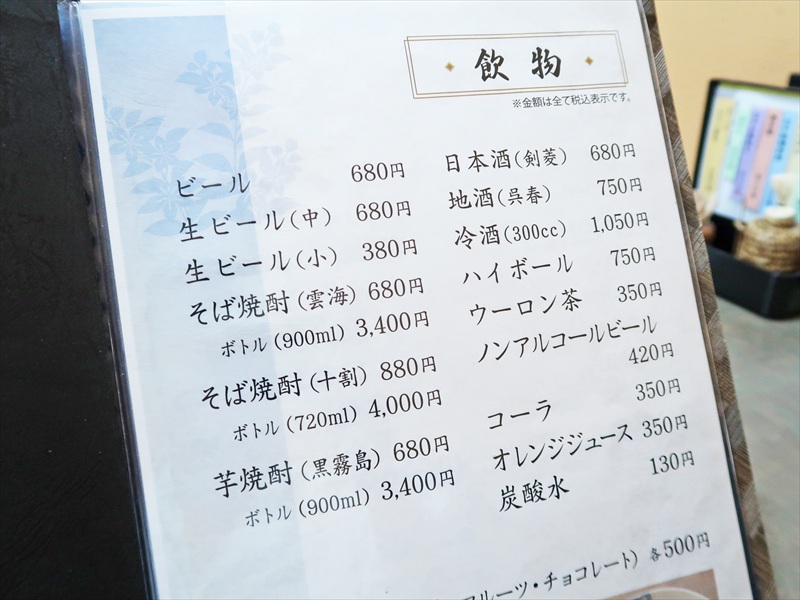 飲物
※金額は全て税込表示です。
ビール 680円
生ビール(中) 680円
生ビール(小) 380円
そば焼酎(雲海) 680円
ボトル(900ml) 3,400円
そば焼酎(十割) 880円
ボトル(720ml) 4,000円
芋焼酎(黒霧島) 680円
ボトル(900ml) 3,400円
日本酒(剣菱) 680円
地酒(呉春) 750円
冷酒(300cc) 1,050円
ハイボール 750円
ウーロン茶 350円
ノンアルコールビール
420円
コーラ 350円
オレンジジュース 350円
炭酸水 130円
フルーツ・チョコレート) 各500円